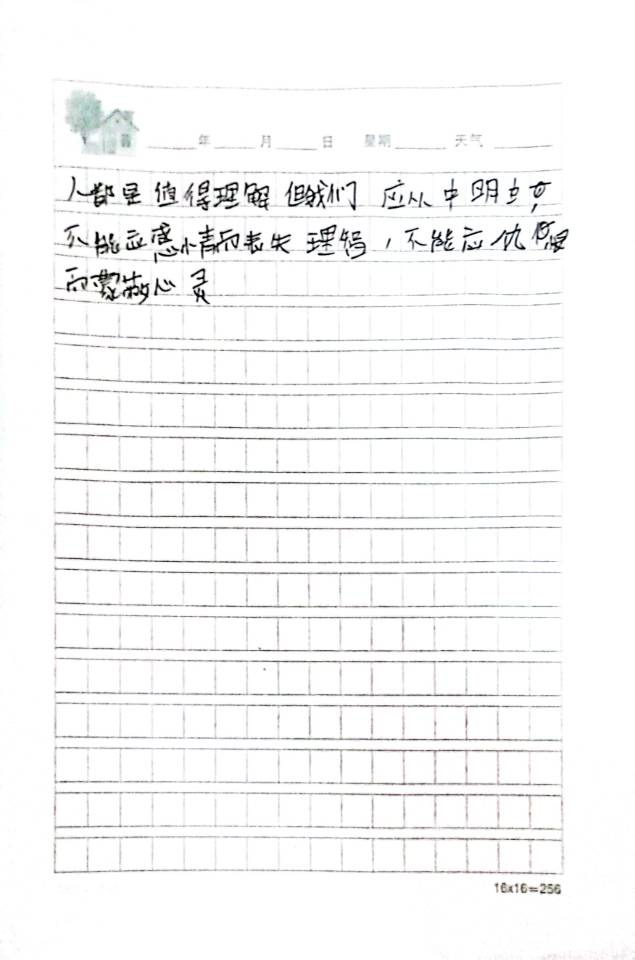 年 月 日 星期 天气
人都是值得理解但我们应从中明白,
不能应感情而丧失理智,不能应仇恨
而蒙蔽心灵
16x16=256